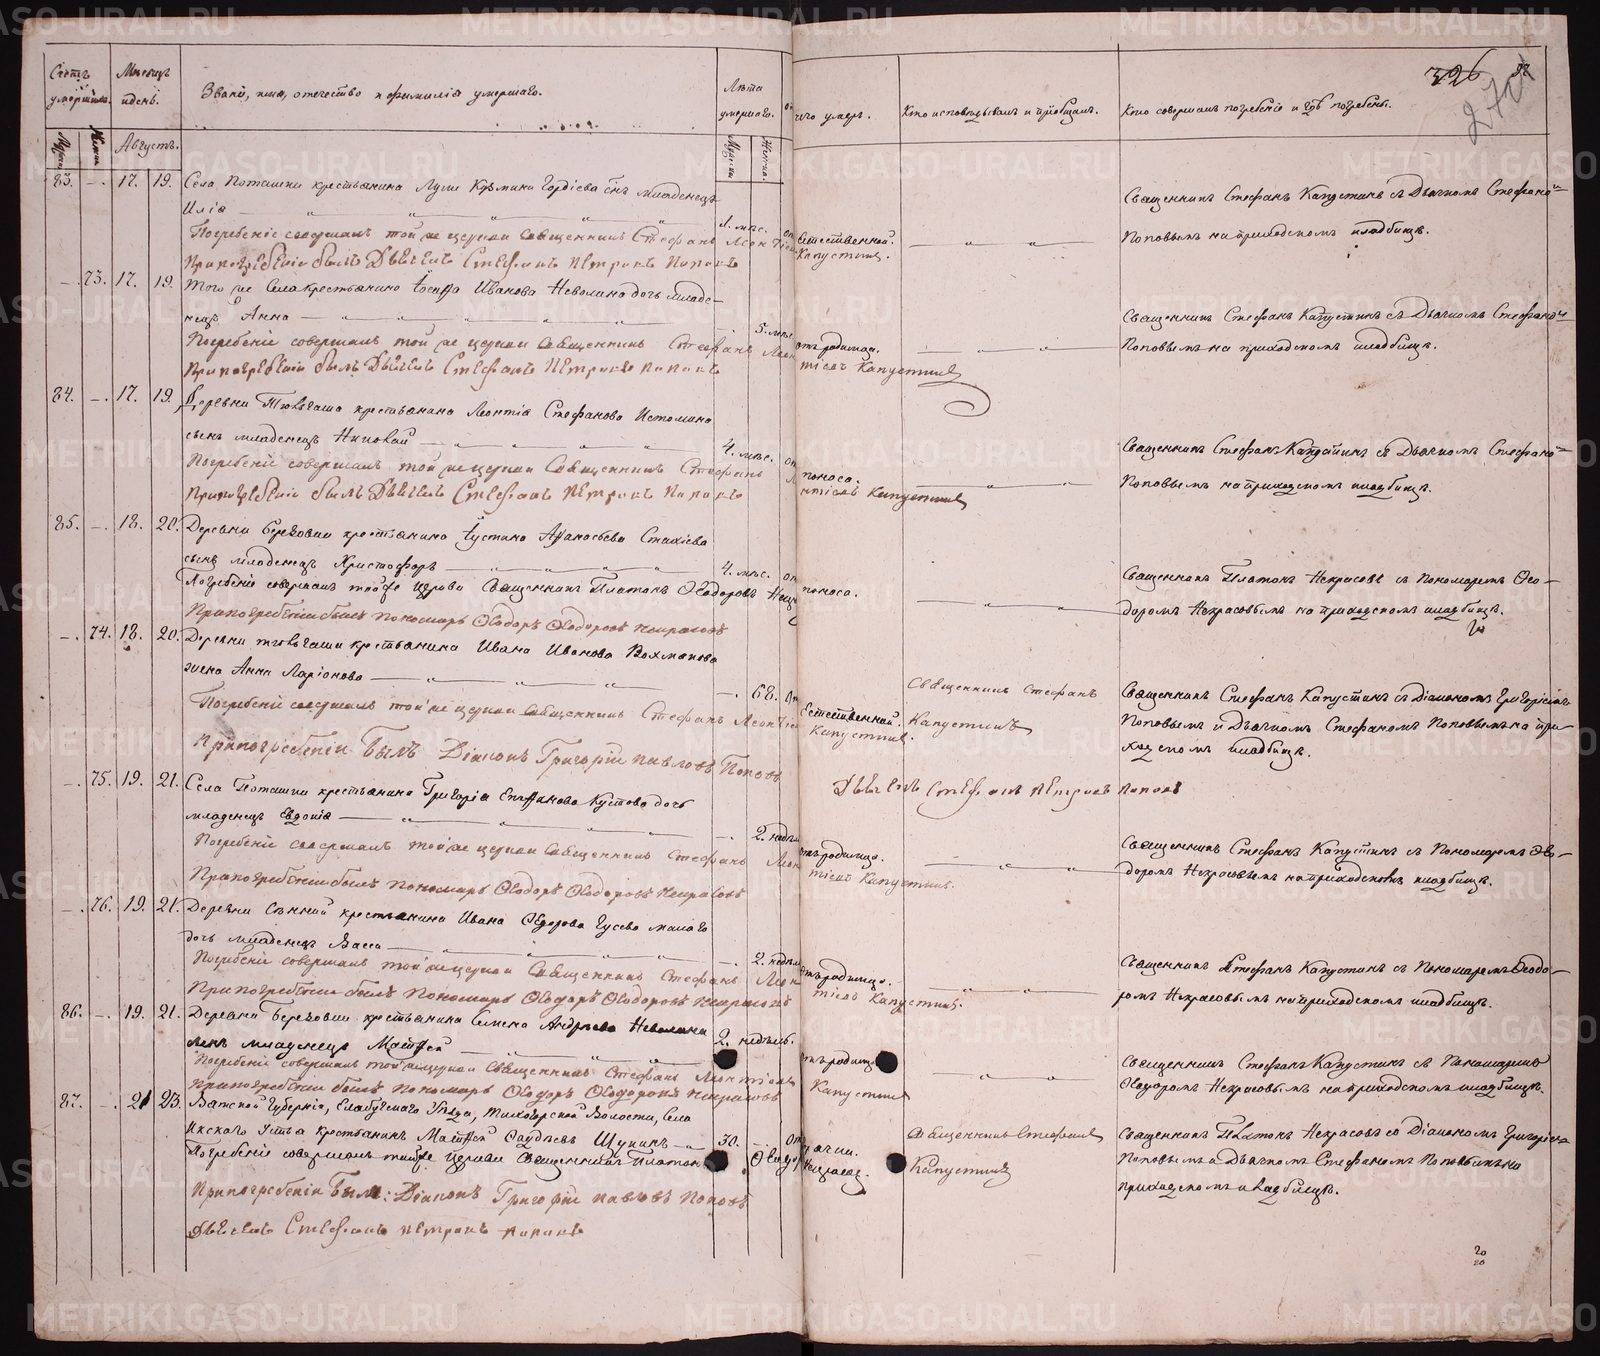 Счетъ умершихъ.
Мѣсяцъ и день.
Званіе, имя, отечество и фамилія умершаго.
Лѣта умершаго.
чего умеръ.
Кто исповѣдывалъ и пріобщалъ.
Кто совершалъ погребеніе и гдѣ погребены.
326
Августъ.
83. 17. 19. Села Поташки крестьянина Луки Козмина Гордѣева сынъ младенецъ
Илія
естественной.
Священникъ Стефанъ Капустинъ съ Дьячкомъ Стефаномъ
Поповымъ на приходскомъ кладбищѣ.
Погребеніе совершалъ той же церкви Священникъ Стефанъ Леонтіевъ Капустинъ.
При погребеніи былъ Дьячекъ Стефанъ Петровъ Поповъ
73. 17. 19. Того же Села крестьянина Іосифа Иванова Неволина дочь младе-
нецъ Анна
5. мѣс. отъ родимца.
Священникъ Стефанъ Капустинъ съ Дьячкомъ Стефаномъ
Поповымъ на приходскомъ кладбищѣ.
Погребеніе совершалъ той же церкви Священникъ Стефанъ Леонтіевъ Капустинъ
При погребеніи былъ Дьячекъ Стефанъ Петровъ Поповъ
84. 17. 19. Деревни крестьянина Леонтія Стефанова Истомина
сынъ младенецъ Николай
4. мѣс. от поноса.
Священникъ Стефанъ Капустинъ съ Дьячкомъ Стефаномъ
Поповымъ на приходскомъ кладбищѣ.
Погребеніе совершалъ той же церкви Священникъ Стефанъ Леонтіевъ Капустинъ
При погребеніи былъ Дьячекъ Стефанъ Петровъ Поповъ
85. 18. 20. Деревни Березовки крестьянина Іустина Афанасьева Стахіева
сынъ младенецъ Христофоръ
4. мѣс. от поноса.
Священникъ Платонъ Некрасовъ съ Пономаремъ Ѳео-
доромъ Некрасовымъ на приходскомъ кладбищѣ.
Погребеніе совершалъ тойже церкви Священникъ Платонъ Ѳеодоровъ
При погребеніи былъ Пономарь Ѳеодоръ Ѳеодоровъ Некрасовъ
74. 18. 20. Деревни крестьянина Ивана Иванова Вохмякова
жена Анна Ларіонова
68. От Естественной.
Священникъ Стефанъ
Капустинъ
Священникъ Стефанъ Капустинъ съ Діакономъ Григоріемъ
Поповымъ и Дьячкомъ Стефаномъ Поповымъ на при-
ходскомъ кладбищѣ.
Погребеніе совершалъ той же церкви Священникъ Стефанъ Леонтіевъ Капустинъ.
При погребеніи былъ Діаконъ Григорій Павловъ Поповъ
Дьячекъ Стефанъ Петровъ Поповъ
75. 19. 21. Села Поташки крестьянина Григорія Епифанова Кустова дочь
младенецъ Евдокія
2. недѣл. отъ родимца.
Священникъ Стефанъ Капустинъ съ Пономаремъ Ѳео-
доромъ Некрасовымъ на приходскомъ кладбищѣ.
Погребеніе совершалъ той же церкви Священникъ Стефанъ Леонтіевъ Капустинъ.
При погребеніи былъ Пономарь Ѳеодоръ Ѳеодоровъ Некрасовъ
76. 19. 21. Деревни Сѣнной крестьянина Ивана Ѳедорова Гусева малаго
дочь младенецъ Васса
2. недѣл. отъ родимца.
Священникъ Стефанъ Капустинъ съ Пономаремъ Ѳеодо-
ромъ Некрасовымъ на приходскомъ кладбищѣ.
Погребеніе совершалъ той же церкви Священникъ Стефанъ Леонтіевъ Капустинъ.
При погребеніи былъ Пономарь Ѳеодоръ Ѳеодоровъ Некрасовъ
86. 19. 21. Деревни Березовки крестьянина Семена Андреева Неволина
сынъ младенецъ Матфей
2. недѣль. отъ родимц
Священникъ Стефанъ Капустинъ съ Пономаремъ
Ѳеодоромъ Некрасовымъ на приходскомъ кладбищѣ.
Погребеніе совершалъ той же церкви Священникъ Стефанъ Леонтіевъ Капустинъ
При погребеніи былъ Пономарь Ѳеодоръ Ѳеодоровъ Некрасовъ
87. 21 23. Вятской Губерніи, Елабужскаго Уѣзда, Волости, Села
Икскаго Устья крестьянинъ Матфей Щукинъ
30.
Священникъ Стефанъ
Капустинъ
Священникъ Платонъ Некрасовъ со Діакономъ Григоріемъ
Поповымъ и Дьячкомъ Стефаномъ Поповымъ на
приходскомъ кладбищѣ.
Погребеніе совершалъ тойже церкви Священникъ Платонъ Ѳеодоровъ Некрасовъ.
При погребеніи были: Діаконъ Григорій Павловъ Поповъ
Дьячекъ Стефанъ Петровъ Поповъ
METRIKI.GASO-URAL.RU